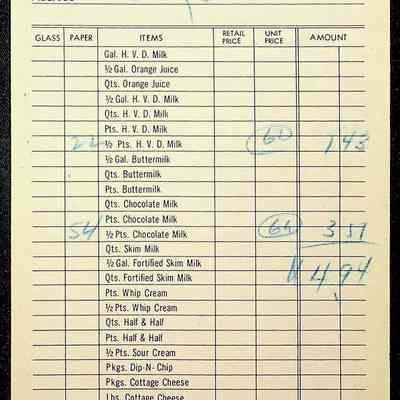 GLASS PAPER ITEMS RETAIL PRICE UNIT PRICE AMOUNT
Gal. H. V. D. Milk
½ Gal. Orange Juice
Qts. Orange Juice
½ Gal. H. V. D. Milk
Qts. H. V. D. Milk
Pts. H. V. D. Milk
22 ½ Pts. H. V. D. Milk 1 43
½ Gal. Buttermilk
Qts. Buttermilk
Pts. Buttermilk
Qts. Chocolate Milk
Pts. Chocolate Milk
54 ½ Pts. Chocolate Milk 3 51
Qts. Skim Milk
½ Gal. Fortified Skim Milk
Qts. Fortified Skim Milk 4 94
Pts. Whip Cream
½ Pts. Whip Cream
Qts. Half & Half
Pts. Half & Half
½ Pts. Sour Cream
Pkgs. Dip-N- Chip
Pkgs. Cottage Cheese
Lbs. Cottage Cheese